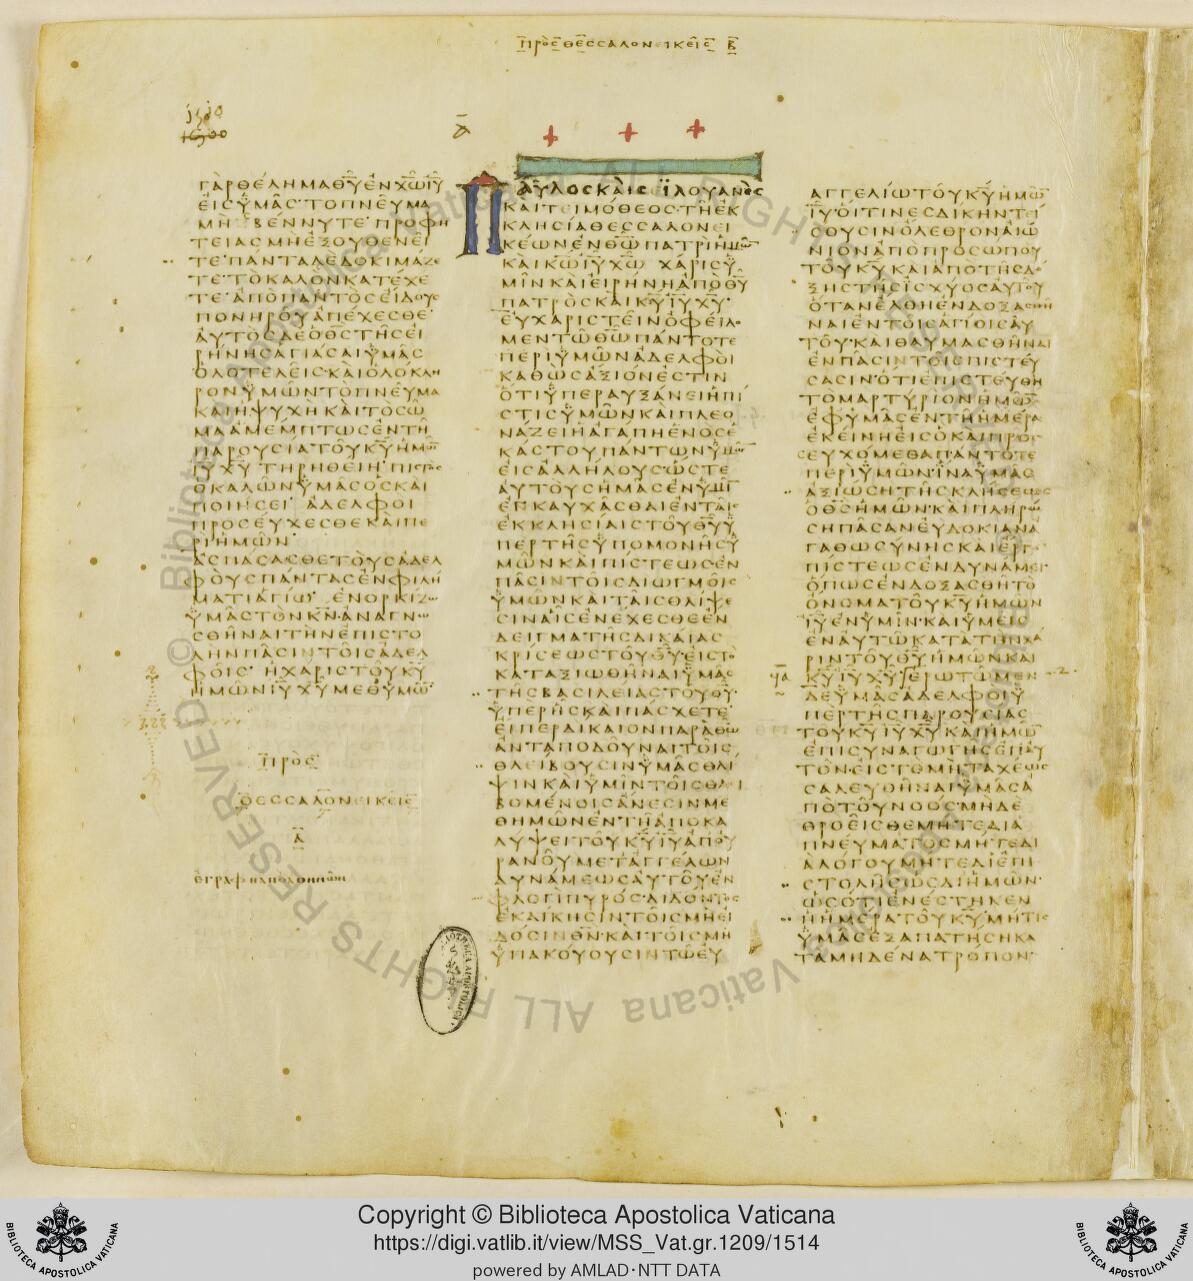 ΠΡΟΣ ΘΕΣΣΑΛΟΝΕΙΚΕΙΣ Β
Α
ΓΑΡΘΕΛΗΜΑΘΥΕΝΧΩΙΥ
ΕΙΣΥΜΑΣΤΟΠΝΕΥΜΑ
ΜΗΣΒΕΝΝΥΤΕΠΡΟΦΗ
ΤΕΙΑΣΜΗΕΞΟΥΘΕΝΕΙ
ΤΕΠΑΝΤΑΔΕΔΟΚΙΜΑΖΕ
ΤΕΤΟΚΑΛΟΝΚΑΤΕΧΕ
ΤΕΑΠΟΠΑΝΤΟΣΕΙΔΟΥΣ
ΠΟΝΗΡΟΥΑΠΕΧΕΣΘΕ
ΑΥΤΟΣΔΕΟΘΣΤΗΣΕΙ
ΡΗΝΗΣΑΓΙΑΣΑΙΥΜΑΣ
ΟΛΟΤΕΛΕΙΣΚΑΙΟΛΟΚΛΗ
ΡΟΝΥΜΩΝΤΟΠΝΕΥΜΑ
ΚΑΙΗΨΥΧΗΚΑΙΤΟΣΩ
ΜΑΑΜΕΜΠΤΩΣΕΝΤΗ
ΠΑΡΟΥΣΙΑΤΟΥΚΥΗΜΩ
ΙΥΧΥΤΗΡΗΘΕΙΗΠΙΣΤΟΣ
ΟΚΑΛΩΝΥΜΑΣΟΣΚΑΙ
ΠΟΙΗΣΕΙ ΑΔΕΛΦΟΙ
ΠΡΟΣΕΥΧΕΣΘΕΚΑΙΠΕ
ΡΙΗΜΩΝ
ΑΣΠΑΣΑΣΘΕΤΟΥΣΑΔΕΛ
ΦΟΥΣΠΑΝΤΑΣΕΝΦΙΛΗ
ΜΑΤΙΑΓΙΩ ΕΝΟΡΚΙΖΩ
ΥΜΑΣΤΟΝΚΝΑΝΑΓΝΩ
ΣΘΗΝΑΙΤΗΝΕΠΙΣΤΟ
ΛΗΝΠΑΣΙΝΤΟΙΣΑΔΕΛ
ΦΟΙΣ ΗΧΑΡΙΣΤΟΥΚΥ
ΗΜΩΝΙΥΧΥΜΕΘΥΜΩ
ΠΡΟΣ
ΘΕΣΣΑΛΟΝΕΙΚΕΙΣ
Α
ΠΑΥΛΟΣΚΑΙΣΙΛΟΥΑΝΟΣ
ΚΑΙΤΕΙΜΟΘΕΟΣΤΗΕΚ
ΚΛΗΣΙΑΘΕΣΣΑΛΟΝΕΙ
ΚΕΩΝΕΝΘΩΠΑΤΡΙΗΜΩ
ΚΑΙΚΩΙΥΧΩ ΧΑΡΙΣΥ
ΜΙΝΚΑΙΕΙΡΗΝΗΑΠΟΘΥ
ΠΑΤΡΟΣΚΑΙΚΥΙΥΧΥ
ΕΥΧΑΡΙΣΤΕΙΝΟΦΕΙΛΟ
ΜΕΝΤΩΘΩΠΑΝΤΟΤΕ
ΠΕΡΙΥΜΩΝΑΔΕΛΦΟΙ
ΚΑΘΩΣΑΞΙΟΝΕΣΤΙΝ
ΟΤΙΥΠΕΡΑΥΞΑΝΕΙΗΠΙ
ΣΤΙΣΥΜΩΝΚΑΙΠΛΕΟ
ΝΑΖΕΙΗΑΓΑΠΗΕΝΟΣΕ
ΚΑΣΤΟΥΠΑΝΤΩΝΥΜΩ
ΕΙΣΑΛΛΗΛΟΥΣΩΣΤΕ
ΑΥΤΟΥΣΗΜΑΣΕΝΥΜΙ
ΕΝΚΑΥΧΑΣΘΑΙΕΝΤΑΙΣ
ΕΚΚΛΗΣΙΑΙΣΤΟΥΘΥΥ
ΠΕΡΤΗΣΥΠΟΜΟΝΗΣΥ
ΜΩΝΚΑΙΠΙΣΤΕΩΣΕΝ
ΠΑΣΙΝΤΟΙΣΔΙΩΓΜΟΙΣ
ΥΜΩΝΚΑΙΤΑΙΣΘΛΙΨΕ
ΣΙΝΑΙΣΕΝΕΧΕΣΘΕΕΝ
ΔΕΙΓΜΑΤΗΣΔΙΚΑΙΑΣ
ΚΡΙΣΕΩΣΤΟΥΘΥΕΙΣΤΟ
ΚΑΤΑΞΙΩΘΗΝΑΙΥΜΑΣ
ΤΗΣΒΑΣΙΛΕΙΑΣΤΟΥΘΥ
ΥΠΕΡΗΣΚΑΙΠΑΣΧΕΤΕ
ΕΙΠΕΡΔΙΚΑΙΟΝΠΑΡΑΘΩ
ΑΝΤΑΠΟΔΟΥΝΑΙΤΟΙΣ
ΘΛΕΙΒΟΥΣΙΝΥΜΑΣΘΛΙ
ΨΙΝΚΑΙΥΜΙΝΤΟΙΣΘΛΕΙ
ΒΟΜΕΝΟΙΣΑΝΕΣΙΝΜΕ
ΘΗΜΩΝΕΝΤΗΑΠΟΚΑ
ΛΥΨΕΙΤΟΥΚΥΙΥΑΠΟΥ
ΡΑΝΟΥΜΕΤΑΓΓΕΛΩΝ
ΔΥΝΑΜΕΩΣΑΥΤΟΥΕΝ
ΦΛΟΓΙΠΥΡΟΣΔΙΔΟΝΤΟΣ
ΕΚΔΙΚΗΣΙΝΤΟΙΣΜΗΕΙ
ΔΟΣΙΝΘΝΚΑΙΤΟΙΣΜΗ
ΥΠΑΚΟΥΟΥΣΙΝΤΩΕΥ
ΑΓΓΕΛΙΩΤΟΥΚΥΗΜΩ
ΙΥΟΙΤΙΝΕΣΔΙΚΗΝΤΕΙ
ΣΟΥΣΙΝΟΛΕΘΡΟΝΑΙΩ
ΝΙΟΝΑΠΟΠΡΟΣΩΠΟΥ
ΤΟΥΚΥΚΑΙΑΠΟΤΗΣΔΟ
ΞΗΣΤΗΣΙΣΧΥΟΣΑΥΤΟΥ
ΟΤΑΝΕΛΘΗΕΝΔΟΞΑΣΘΗ
ΝΑΙΕΝΤΟΙΣΑΓΙΟΙΣΑΥ
ΤΟΥΚΑΙΘΑΥΜΑΣΘΗΝΑΙ
ΕΝΠΑΣΙΝΤΟΙΣΠΙΣΤΕΥ
ΣΑΣΙΝΟΤΙΕΠΙΣΤΕΥΘΗ
ΤΟΜΑΡΤΥΡΙΟΝΗΜΩ
ΕΦΥΜΑΣΕΝΤΗΗΜΕΡΑ
ΕΚΕΙΝΗΕΙΣΟΚΑΙΠΡΟΣ
ΕΥΧΟΜΕΘΑΠΑΝΤΟΤΕ
ΠΕΡΙΥΜΩΝΙΝΑΥΜΑΣ
ΑΞΙΩΣΗΤΗΣΚΛΗΣΕΩΣ
ΟΘΣΗΜΩΝΚΑΙΠΛΗΡΩ
ΣΗΠΑΣΑΝΕΥΔΟΚΙΑΝΑ
ΓΑΘΩΣΥΝΗΣΚΑΙΕΡΓΟ
ΠΙΣΤΕΩΣΕΝΔΥΝΑΜΕΙ
ΟΠΩΣΕΝΔΟΞΑΣΘΗΤΟ
ΟΝΟΜΑΤΟΥΚΥΗΜΩΝ
ΙΥΕΝΥΜΙΝΚΑΙΥΜΕΙΣ
ΕΝΑΥΤΩΚΑΤΑΤΗΝΧΑ
ΡΙΝΤΟΥΘΥΗΜΩΝΚΑΙ
ΚΥΙΥΧΥΕΡΩΤΩΜΕΝ
ΔΕΥΜΑΣΑΔΕΛΦΟΙΥ
ΠΕΡΤΗΣΠΑΡΟΥΣΙΑΣ
ΤΟΥΚΥΙΥΧΥΚΑΙΗΜΩ
ΕΠΙΣΥΝΑΓΩΓΗΣΕΠΑΥ
ΤΟΝΕΙΣΤΟΜΗΤΑΧΕΩΣ
ΣΑΛΕΥΘΗΝΑΙΥΜΑΣΑ
ΠΟΤΟΥΝΟΟΣΜΗΔΕ
ΘΡΟΕΙΣΘΕΜΗΤΕΔΙΑ
ΠΝΕΥΜΑΤΟΣΜΗΤΕΔΙ
ΑΛΟΓΟΥΜΗΤΕΔΙΕΠΙ
ΣΤΟΛΗΣΩΣΔΙΗΜΩΝ
ΩΣΟΤΙΕΝΕΣΤΗΚΕΝ
ΗΗΜΕΡΑΤΟΥΚΥΜΗΤΙΣ
ΥΜΑΣΕΞΑΠΑΤΗΣΗΚΑ
ΤΑΜΗΔΕΝΑΤΡΟΠΟΝ
Copyright © Biblioteca Apostolica Vaticana
https://digi.vatlib.it/view/MSS_Vat.gr.1209/1514
powered by AMLAD·NTT DATA
BIBLIOTECA APOSTOLICA VATICANA
BIBLIOTECA APOSTOLICA VATICANA